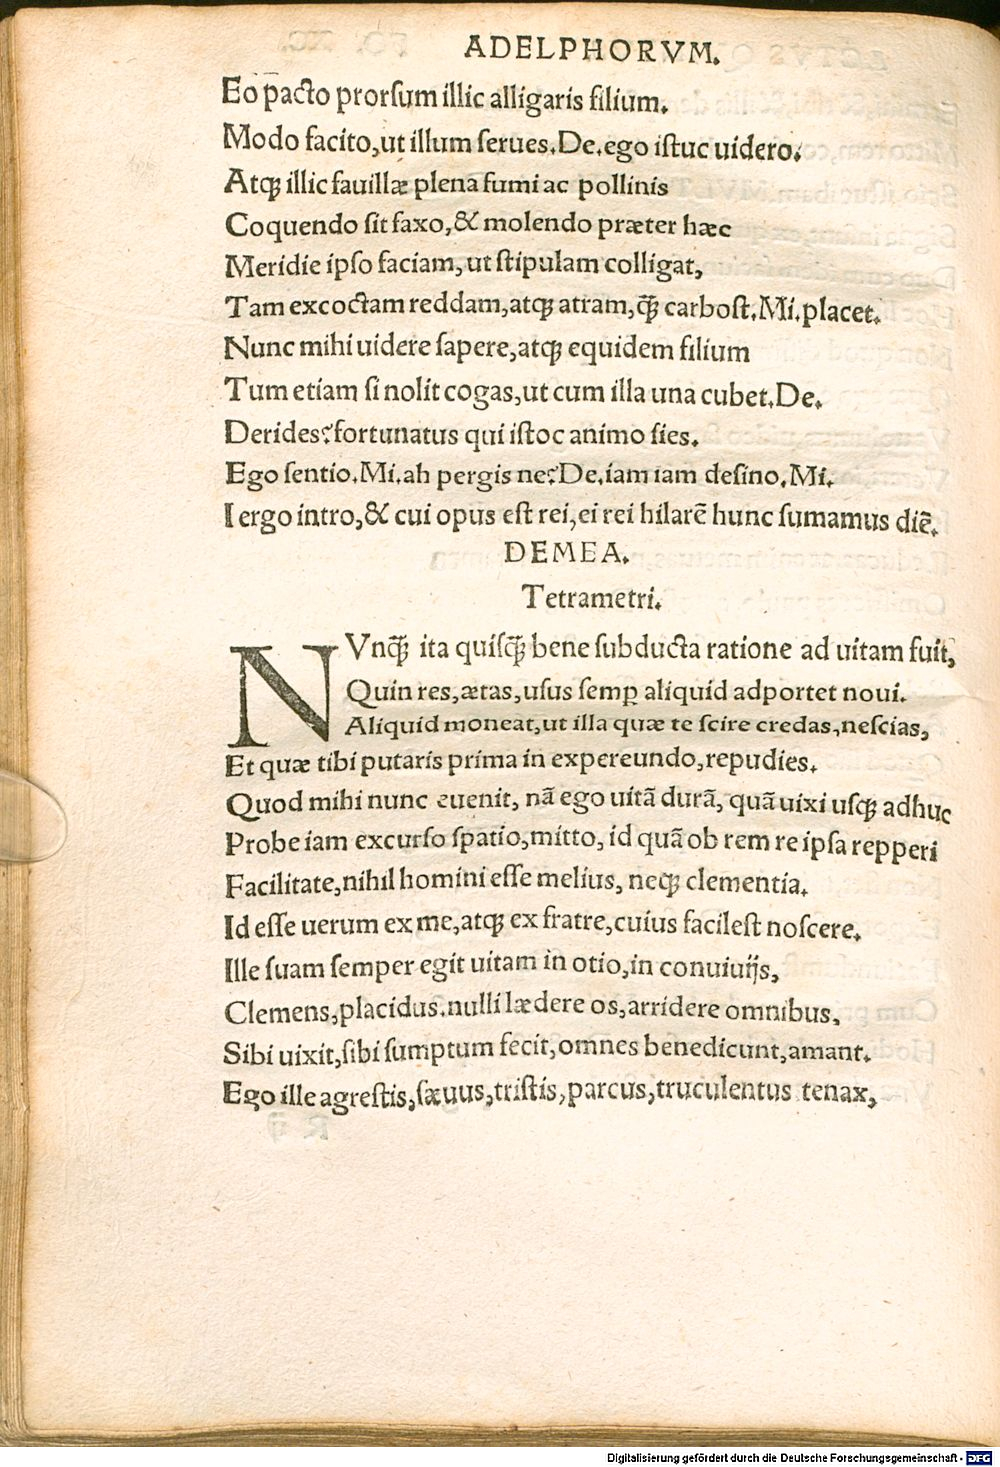 ADELPHORVM.
Eo pacto prorſum illic alligaris filium.
Modo facito,ut illum ſerues.De.ego iſtuc uidero.
Atqꝫ illic fauillæ plena fumi ac pollinis
Coquendo ſit faxo,& molendo præter hæc
Meridie ipſo faciam,ut ſtipulam colligat,
Tam excoctam reddam,atqꝫ atram,q̄ꝫ carboſt.Mi.placet.
Nunc mihi uidere ſapere,atqꝫ equidem filium
Tum etiam ſi nolit cogas,ut cum illa una cubet.De.
Derides?fortunatus qui iſtoc animo ſies.
Ego ſentio.Mi.ah pergis ne?De.iam iam deſino.Mi.
I ergo intro,& cui opus eſt rei,ei rei hilarē hunc ſumamus diē.
DEMEA.
Tetrametri.
NVnq̄ꝫ ita quiſq̄ꝫ bene ſubducta ratione ad uitam fuit,
Quin res,ætas,uſus ſemꝑ aliquid adportet noui.
Aliquid moneat,ut illa quæ te ſcire credas,neſcias,
Et quæ tibi putaris prima in expereundo,repudies.
Quod mihi nunc euenit, nā ego uitā durā, quā uixi uſqꝫ adhuc
Probe iam excurſo ſpatio,mitto, id quā ob rem re ipſa repperi
Facilitate,nihil homini eſſe melius, neqꝫ clementia.
Id eſſe uerum ex me,atqꝫ ex fratre,cuius facileſt noſcere.
Ille ſuam ſemper egit uitam in otio,in conuiuijs,
Clemens,placidus.nulli lædere os,arridere omnibus,
Sibi uixit,ſibi ſumptum fecit,omnes benedicunt,amant.
Ego ille agreſtis,ſæuus,triſtis,parcus,truculentus tenax,
Digitalisierung gefördert durch die Deutsche Forschungsgemeinschaft - DFG